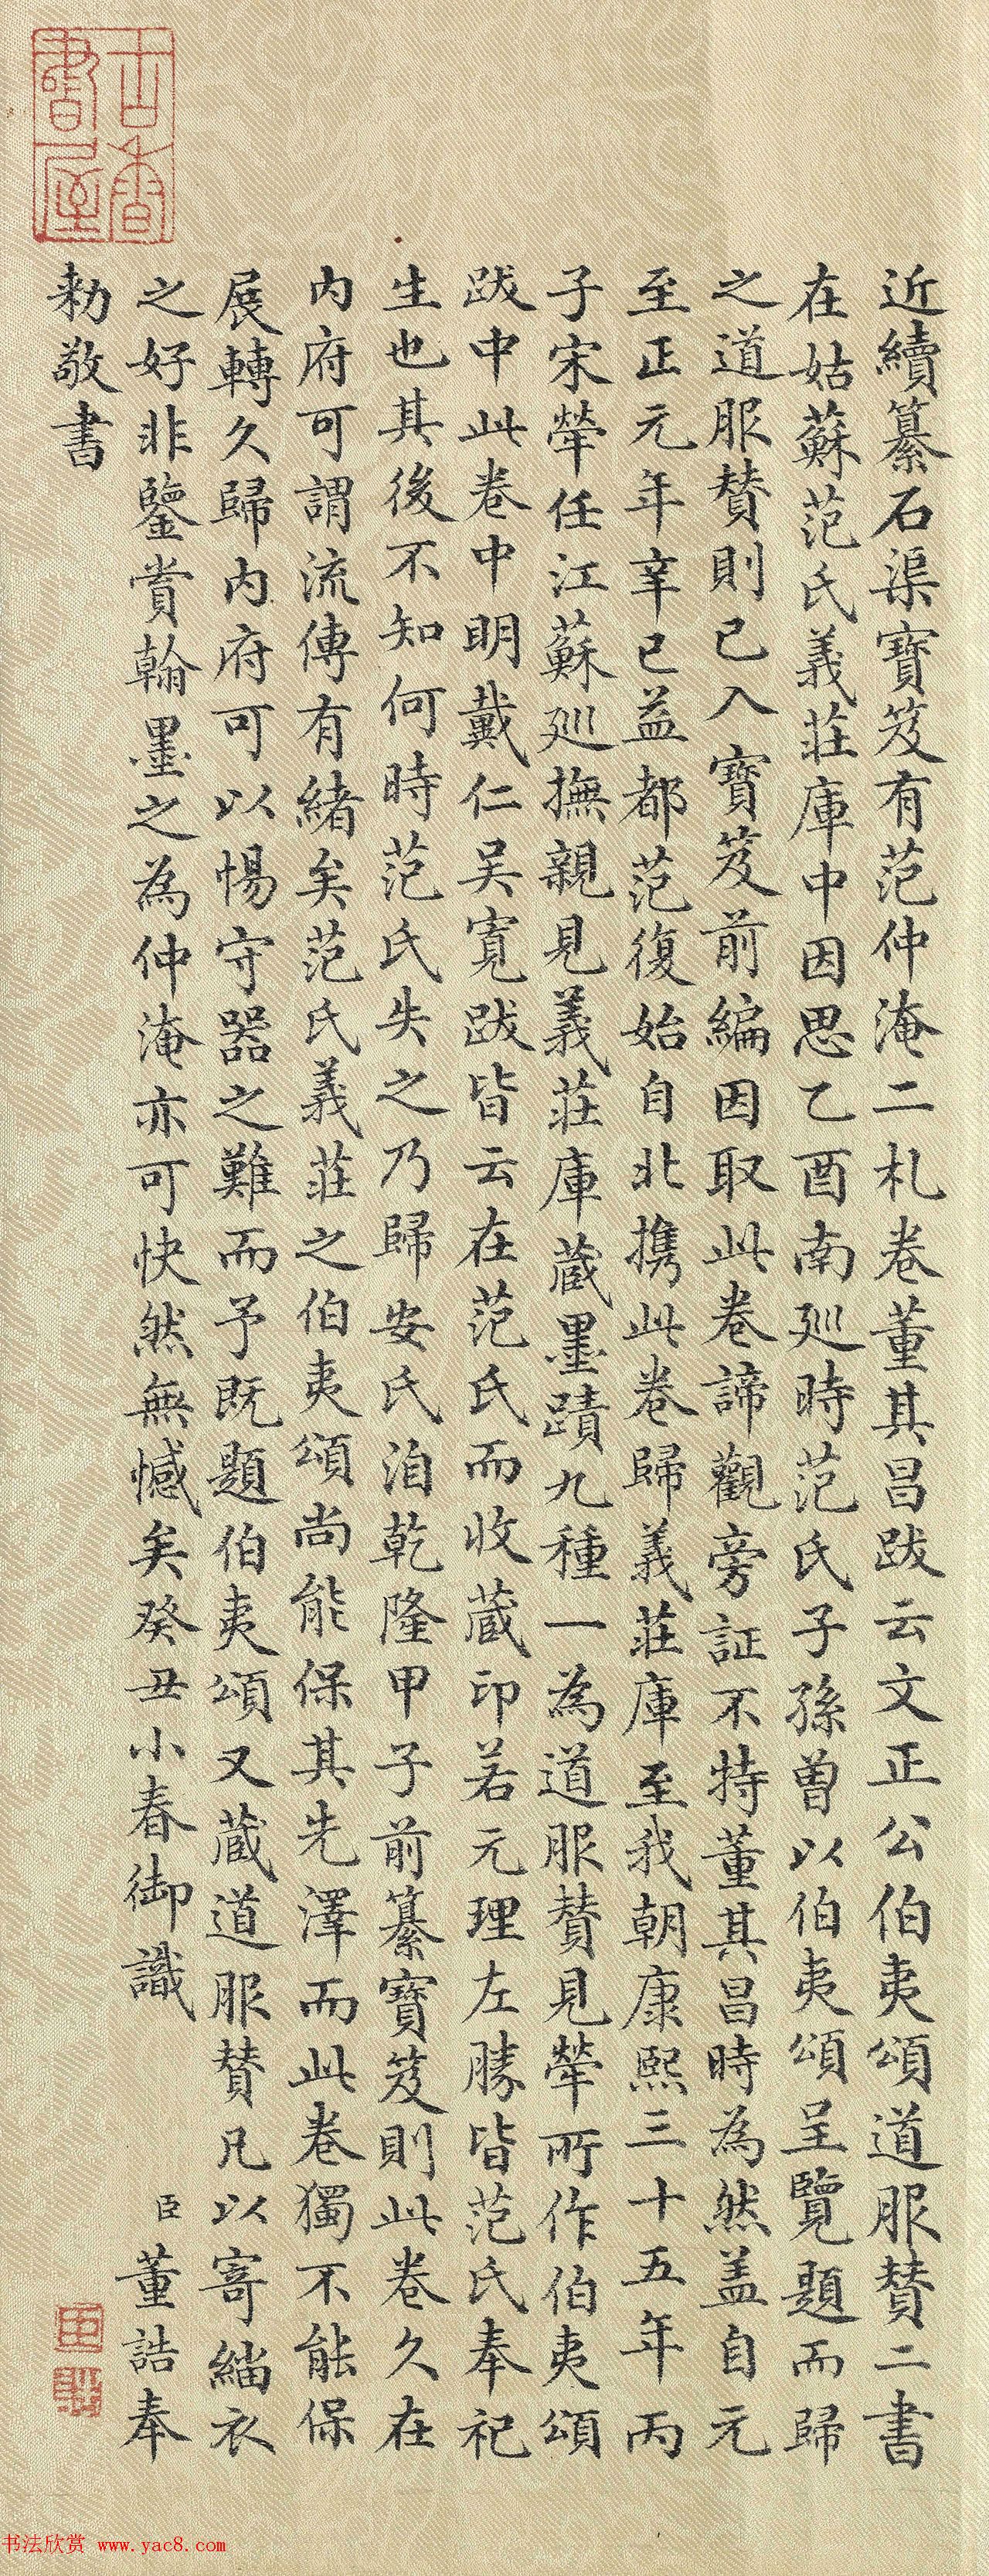 近續纂石渠寶笈有范仲淹二札卷董其昌跋云文正公伯夷頌道服贊二書
在姑蘇范氏義莊庫中因思乙酉南廵時范氏子孫曾以伯夷頌呈覽題而歸
之道服贊則已入寶笈前編因取此卷諦觀旁証不特董其昌時為然盖自元
至正元年辛巳益都范復始自北携此卷歸義莊庫至我朝康熙三十五年丙
子宋犖任江蘇廵撫親見義莊庫蔵墨蹟九種一為道服贊見犖所作伯夷頌
跋中此卷中明戴仁吴寬跋皆云在范氏而收蔵印若元理左勝皆范氏奉祀
生也其後不知何時范氏失之乃歸安氏洎乾隆甲子前纂寶笈則此卷久在
内府可謂流傳有緒矣范氏義莊之伯夷頌尚能保其先澤而此卷獨不能保
展轉久歸内府可以惕守器之難而予既題伯夷頌又蔵道服贊凡以寄緇衣
之好非鑒賞翰墨之為仲淹亦可快然無憾矣癸丑小春御識 臣董誥奉
勅敬書
古香書屋
书法欣赏 www.yac8.com